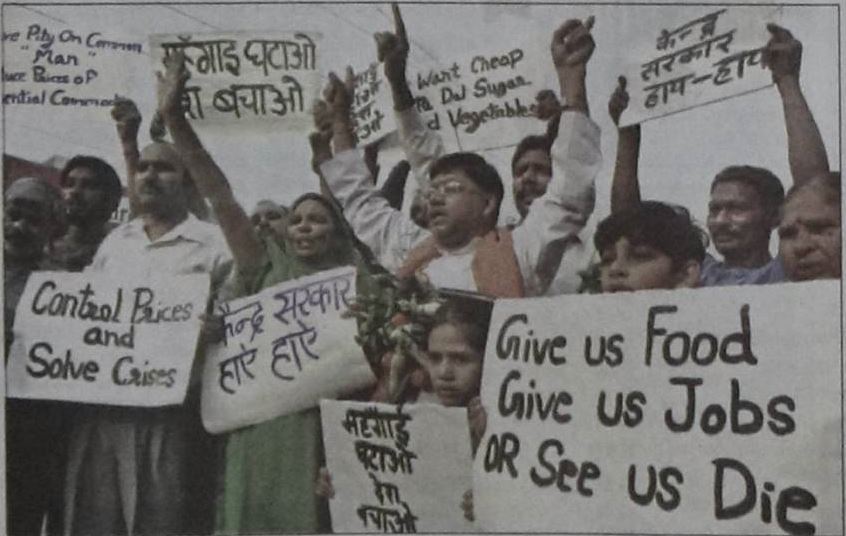 ve Pity On Common
"Man"
uce Prices of
ential Commod
मँहगाई घटाओ
देश बचाओ
Want Cheap
Dal Sugar
d Vegetables
केन्द्र
सरकार
हाय-हाय
Control Prices
and
Solve Crises
केन्द्र सरकार
हाऐ हाऐ
महँगाई
घटाओ
देश
बचाओ
Give us Food
Give us Jobs
OR See us Die